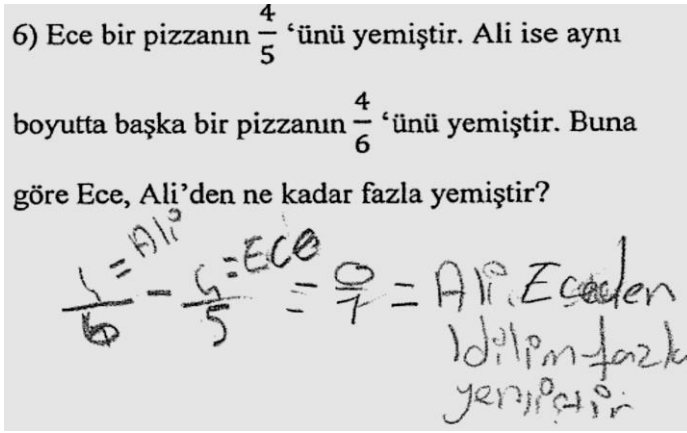 6) Ece bir pizzanın 4/5 ‘ünü yemiştir. Ali ise aynı
boyutta başka bir pizzanın 4/6 ‘ünü yemiştir. Buna
göre Ece, Ali’den ne kadar fazla yemiştir?
4/6 = Ali - 4/5 = ECE = 0/1 = Ali Eceden
1 dilim fazla
yemiştir